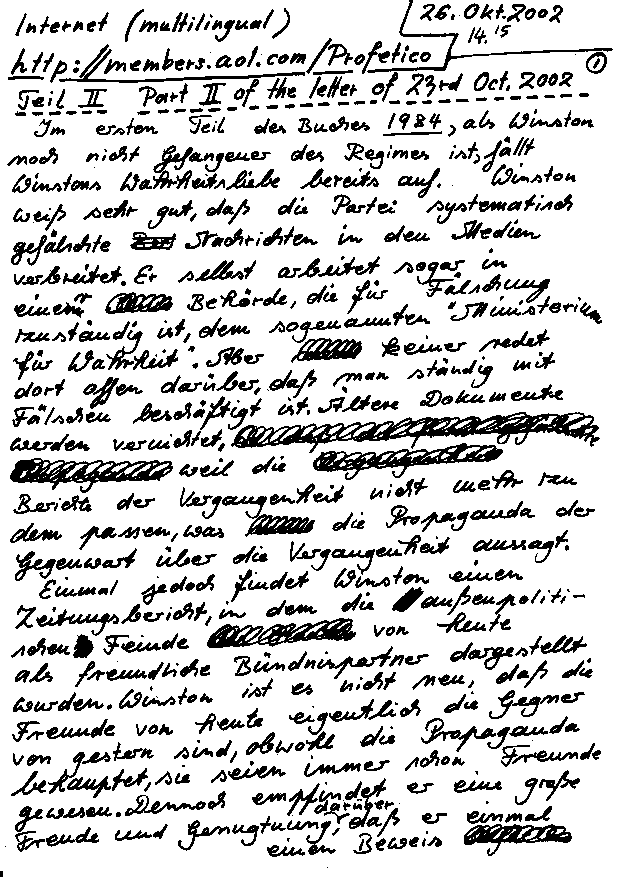 Internet (multilingual)
26. Okt. 2002
14.15
http://members.aol.com/Profetico
1
Teil II Part II of the letter of 23rd Oct. 2002
Im ersten Teil des Buches 1984, als Winston
noch nicht Gefangener des Regimes ist, fällt
Winstons Wahrheitsliebe bereits auf. Winston
weiß sehr gut, daß die Partei systematisch
gefälschte Nachrichten in den Medien
verbreitet. Er selbst arbeitet sogar in
einer Behörde, die für Fälschung
zuständig ist, dem sogenannten "Ministerium
für Wahrheit". Aber keiner redet
dort offen darüber, daß man ständig mit
Fälschen beschäftigt ist. Ältere Dokumente
werden vernichtet,
weil die
Berichte der Vergangenheit nicht mehr zu
dem passen, was die Propaganda der
Gegenwart über die Vergangenheit aussagt.
Einmal jedoch findet Winston einen
Zeitungsbericht, in dem die außenpoliti-
schen Feinde von heute
als freundliche Bündnispartner dargestellt
wurden. Winston ist es nicht neu, daß die
Freunde von heute eigentlich die Gegner
von gestern sind, obwohl die Propaganda
behauptet, sie seien immer schon Freunde
gewesen. Dennoch empfindet er eine große
Freude und Genugtuung darüber, daß er einmal
einen Beweis